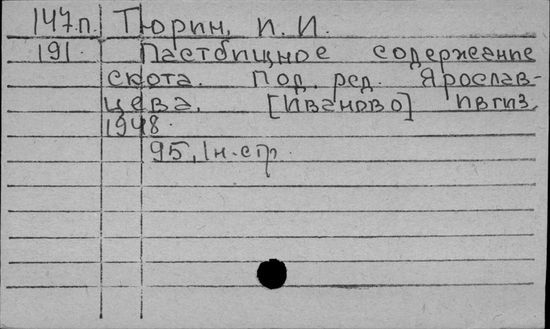 147.п. Тюрин, И. И.
191. Пастбищное содержание
скота. Под. ред. Ярослав-
цева. [Иваново] Ивгиз,
1948.
95, 1н.стр.